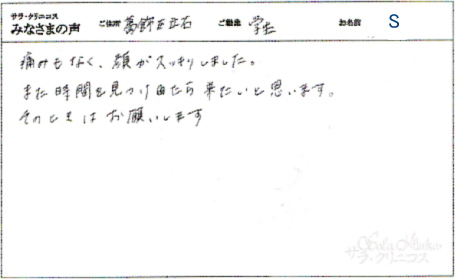 サラ・クリニコス
みなさまの声 ご住所 葛飾区立石 ご勤務 学生 お名前 S
痛みもなく、顔がスッキリしました。
また時間を見つけ出たら来たいと思います。
そのときはお願いします
Sala Clinikos
サラ・クリニコス